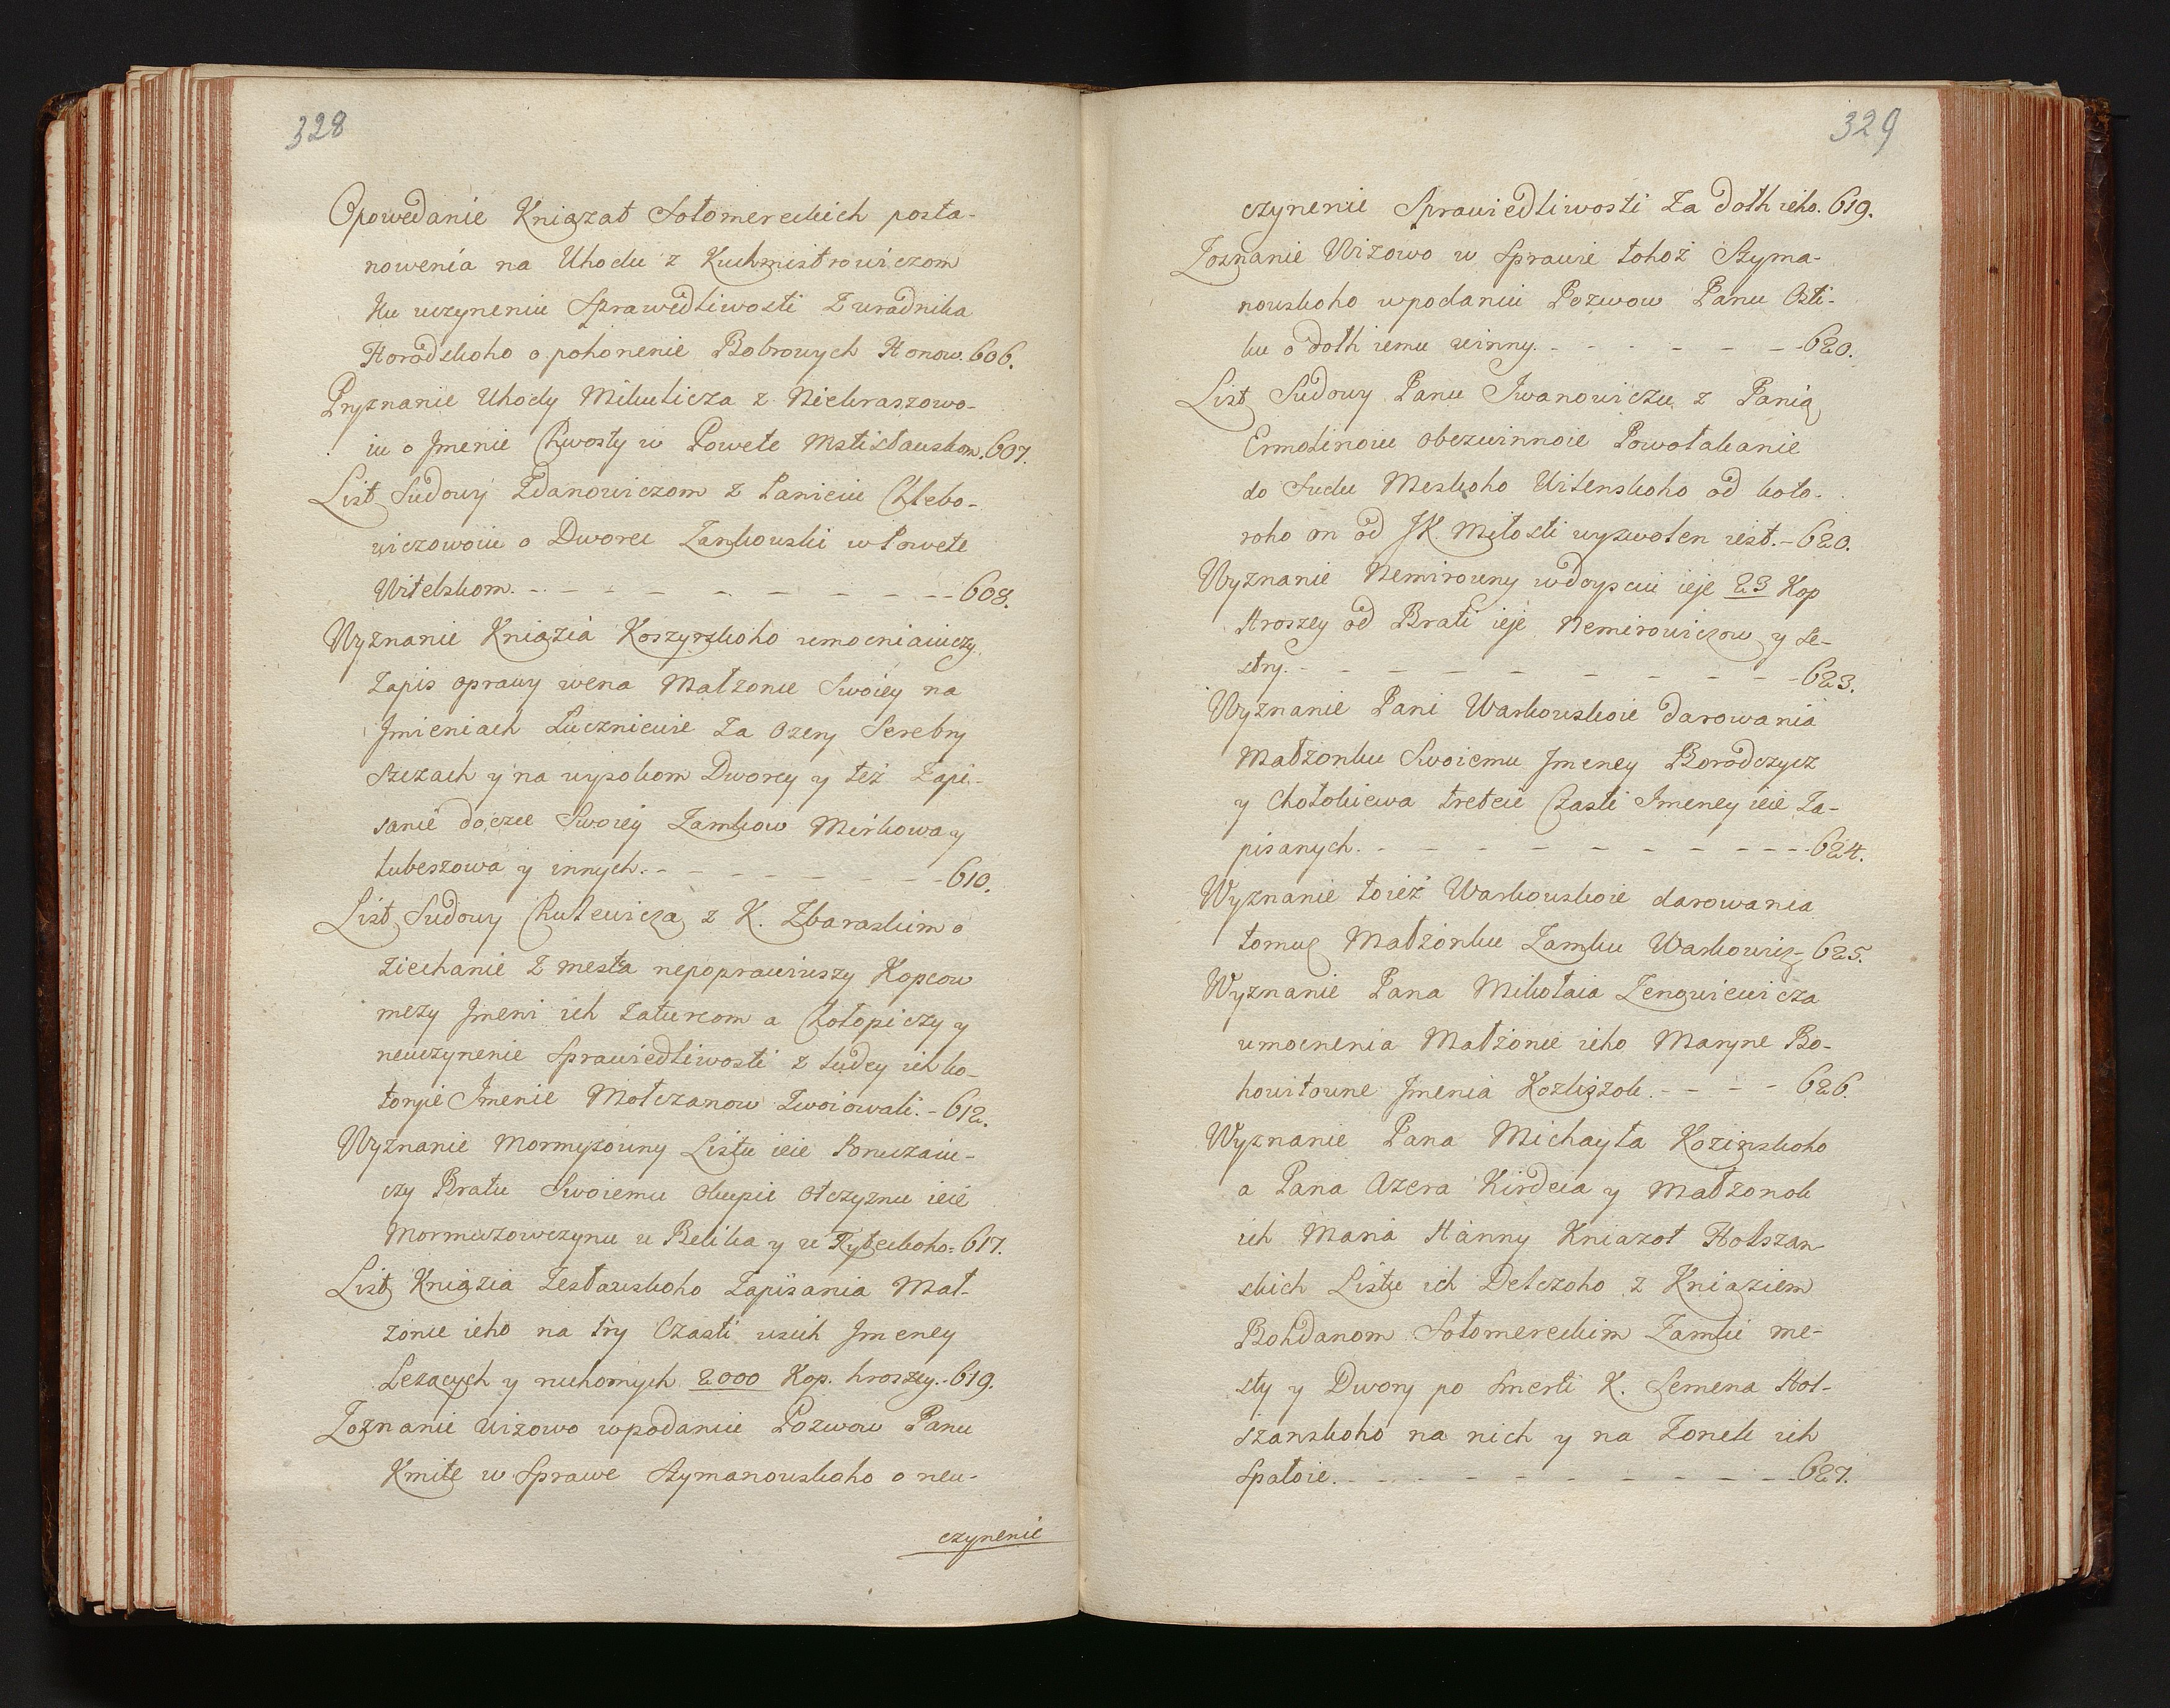 328
Opowedanie Kniazat Sołomereckich posta-
nowenia na Uhodu z Kuchmistrowiczom
Ku uczyneniu Sprawedliwosti z uradnika
Horodskoho o pohonenie Bobrowych Honow. 606.
Pryznanie Uhody Mikulicza z Niekraszowo-
iu o Jmenie Chwosty w Powete Mstisławskom. 607.
List Sudowy Zdanowiczom z Panieiu Chlebo-
wiczowoiu o Dworec Zankowski w Powete
Witebskom. - - - - - - - - - 608.
Wyznanie Kniazia Koszyrskoho umocniaiuczy
Zapis oprawy wena Małzonce Swoiey na
Jmieniach Lucznicwie Za Ozery Serebry
szczach y na wysokom Dworcy y też Zapi-
sanie doczce Swoiey Zamkow Mirkowa y
Lubeszowa y innych. - - - - - - - 610.
List Sudowy Chulewicza z K. Zbaraskim o
Ziechanie z mesta nepoprawiwszy Kopcow
mezy Jmeni ich Zaturcom a Chołopiczy y
neuczynenie Sprawiedliwosti z ludey ich ko-
toryie Jmenie Mołczanow Zwoiowali. - 612.
Wyznanie Mormyzowny Listu ieie Poruczaiu-
czy Bratu Swoiemu Okupie otczyznu ieie
Mormuzowczynu u Belika y u Ryteckoho. 617.
List Kniazia Zesławskoho Zapisania Mał-
żonce ieho na try Czasti wsich Jmeney
Lezacych y ruchomych 2000 Kop. hroszey. - 619.
Zoznanie wizowo w podaniu Pozwow Panu
Kmite w Sprawe Szymanowskoho o neu-
czynenie
329
czynenie Sprawiedliwosti Za dołh ieho. 619.
Zoznanie Wizowo w Sprawie tohoż Szyma-
nowskoho w podaniu Pozwow Panu Osti-
ku o dołh iemu winny. - - - - - - 620.
List Sudowy Panu Jwanowiczu z Panią
Ermolinoiu obezwinnoie Powołakanie
do Sudu Meskoho Witenskoho od koto-
roho on od JK. Miłosti wyzwolen iest. - 620.
Wyznanie Nemirowny w doysciu ieje 23 Kop
Hroszey od Brati ieje Nemirowiczow y Se-
stry. - - - - - - - - - 623.
Wyznanie Pani Warkowskoie darowania
Małżonku Swoiemu Jmeney Borodczycz
y Chotokiewa tretcie Czasti Jmeney ieie Za-
pisanych. - - - - - - - - - 624.
Wyznanie toież Warkowskoie darowania
tomuż Małżonku Zamku Warkowicz - 625.
Wyznanie Pana Mikołaia Zenowiewicza
umocnenia Małżonie ieho Maryne Bo-
howitowne Jmenia Kozliszok. - - - - 626.
Wyznanie Pana Michayła Kozinskoho
a Pana Azera Kirdeia y Małżonok
ich Maria Hanny Kniazot Holszan-
skich Listu ich Delczoho z Kniaziem
Bohdanom Sołomereckim Zamki me-
sty y Dwory po Smerti K. Semena Hol-
szanskoho na nich y na Zonek ich
Spałoie. - - - - - - - - - 627.